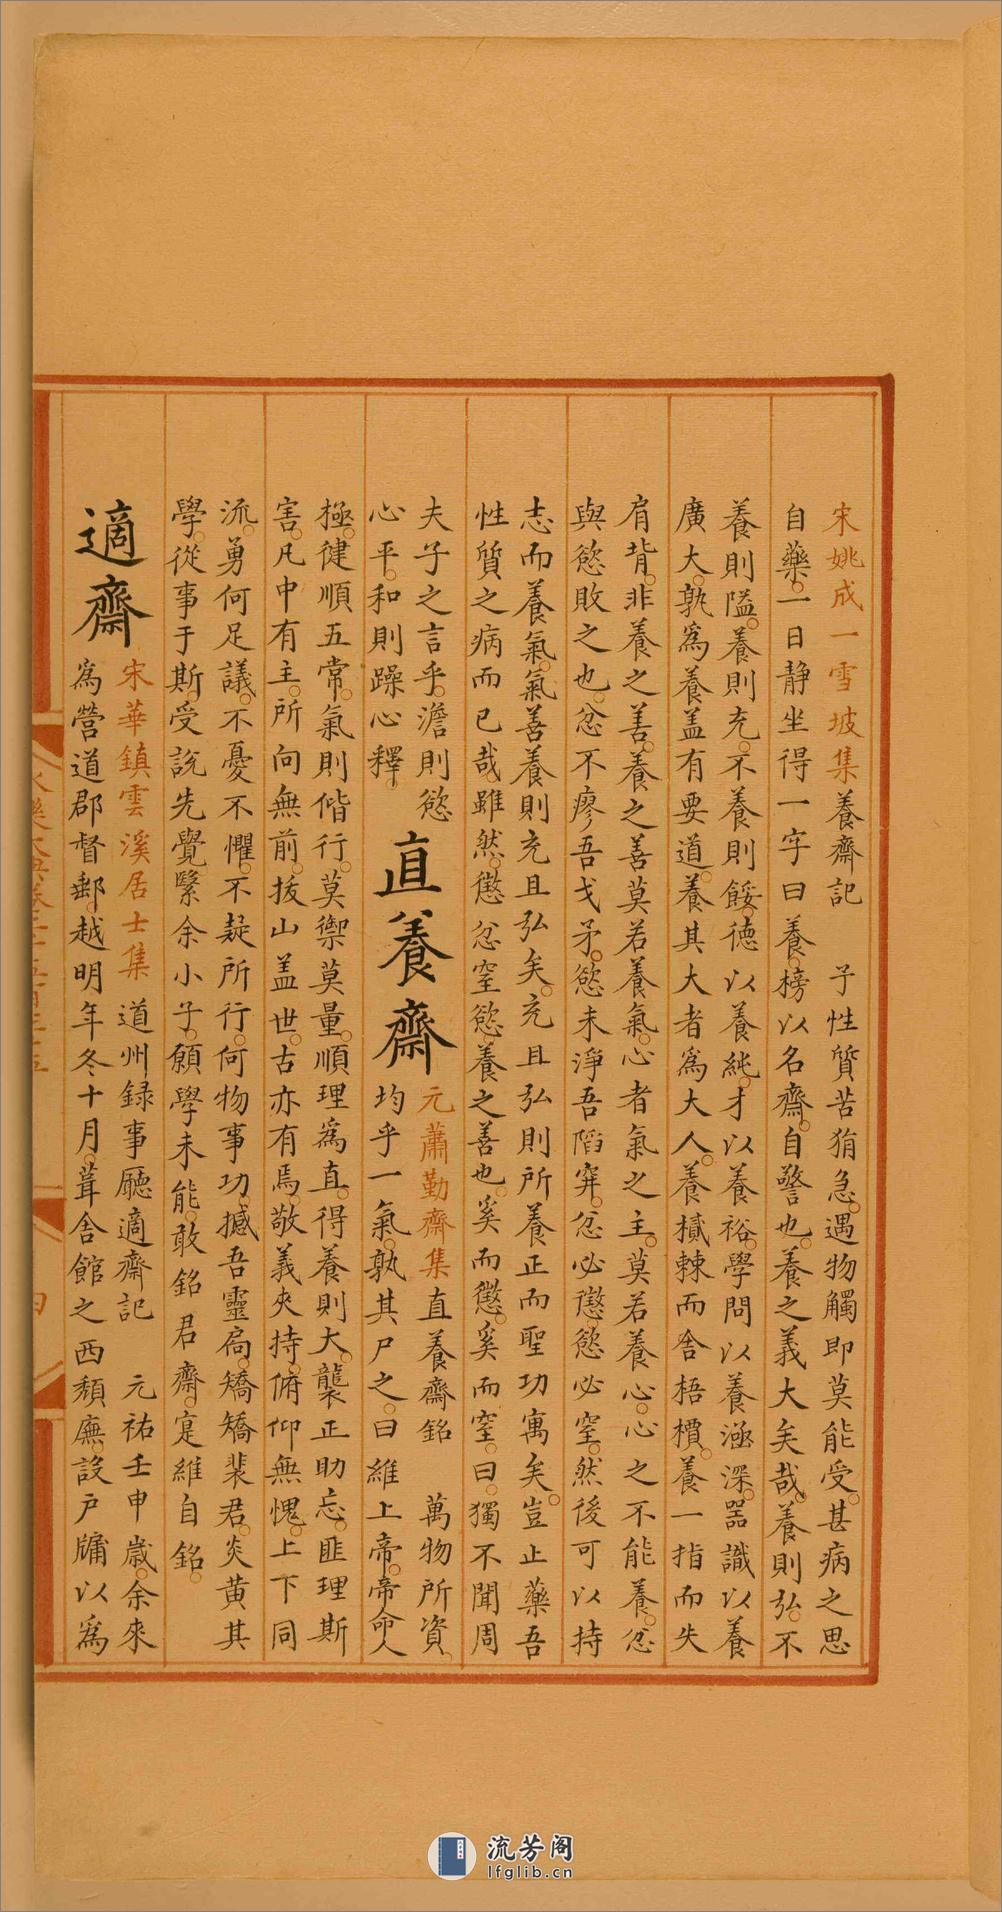 宋姚成一雪坡集養齋記　子性質苦狷急。遇物觸即莫能受。甚病之思
自藥。一日静坐得一字曰養。榜以名齋。自警也。養之義大矣哉。養則弘。不
養則隘。養則充。不養則餒。德以養純。才以養裕。學問以養涵深。器識以養
廣大。孰爲養盖有要道。養其大者爲大人。養樲棘而舍梧檟。養一指而失
肩背。非養之善。養之善莫若養氣。心者氣之主。莫若養心。心之不能養。忿
與慾敗之也。忿不瘳吾戈矛。慾未淨吾陷穽。忿必懲。慾必窒。然後可以持
志而養氣。氣善養則充且弘矣。充且弘則所養正而聖功寓矣。豈止藥吾
性質之病而已哉。雖然。懲忿窒慾。養之善也。奚而懲。奚而窒。曰。獨不聞周
夫子之言乎。澹則慾
心平。和則躁心釋。
直養齋
元蕭勤齋集直養齋銘　萬物所資。
均乎一氣。孰其尸之。曰維上帝。帝命人
極。健順五常。氣則偕行。莫禦莫量。順理爲直。得養則大。襲正助忘。匪理斯
害。凡中有主。所向無前。拔山盖世。古亦有焉。敬義夾持。俯仰無愧。上下同
流。勇何足議。不憂不懼。不疑所行。何物事功。撼吾靈扃。矯矯裴君。炎黄其
學。從事于斯。受說先覺。繄余小子。願學未能。敢銘君齋。寔維自銘。
適齋
宋華鎮雲溪居士集　道州録事廳適齋記　元祐壬申歲。余來
爲營道郡督郵。越明年冬十月。葺舍館之西頽廡。設戸牖以爲
永樂大典卷之二千五百三十五
四
流芳阁
lfglib.cn